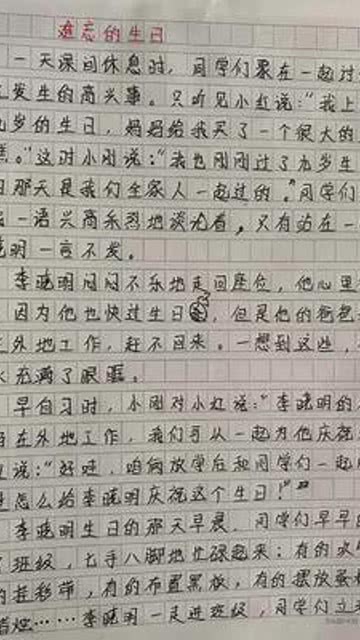 难忘的生日
一天课间休息时，同学们聚在一起讨
发生的高兴事。只听见小红说：“我上
九岁的生日，妈妈给我买了一个很大的
糕。”这时小刚说：“我也刚刚过了九岁生
日那天是我们全家人一起过的。”同学们
一语兴高采烈地谈论着，只有站在一
晓明一言不发。
李晓明闷闷不乐地走回座位，他心里
因为他也快过生日，但是他的爸爸
在外地工作，赶不回来。一想到这些，
水充满了眼眶。
早自习时，小刚对小红说：“李晓明的
在外地工作，我们可以一起为他庆祝
说：“好哇，咱俩放学后和同学们一起
怎么给李晓明庆祝这个生日！”
李晓明生日的那天早晨，同学们早早
了班级，七手八脚地忙碌起来：有的吹
的挂彩带，有的布置黑板，有的摆放蛋
蜡烛……李晓明一走进班级，同学们立